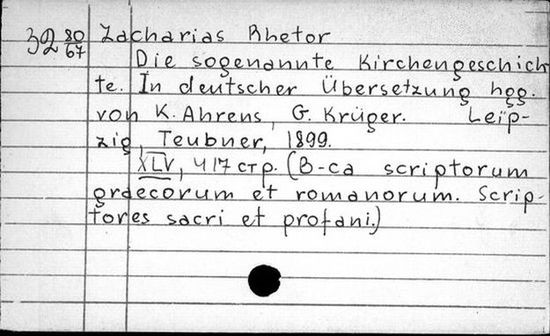 32 80/67 Zacharias Rhetor
Die sogenannte Kirchengeschich
te. In deutscher Übersetzung hgg.
von K. Ahrens, G. Krüger. Leip-
zig, Teubner, 1899.
XLV, 417 стр. (B-ca scriptorum
graecorum et romanorum. Scrip-
tores sacri et profani.)